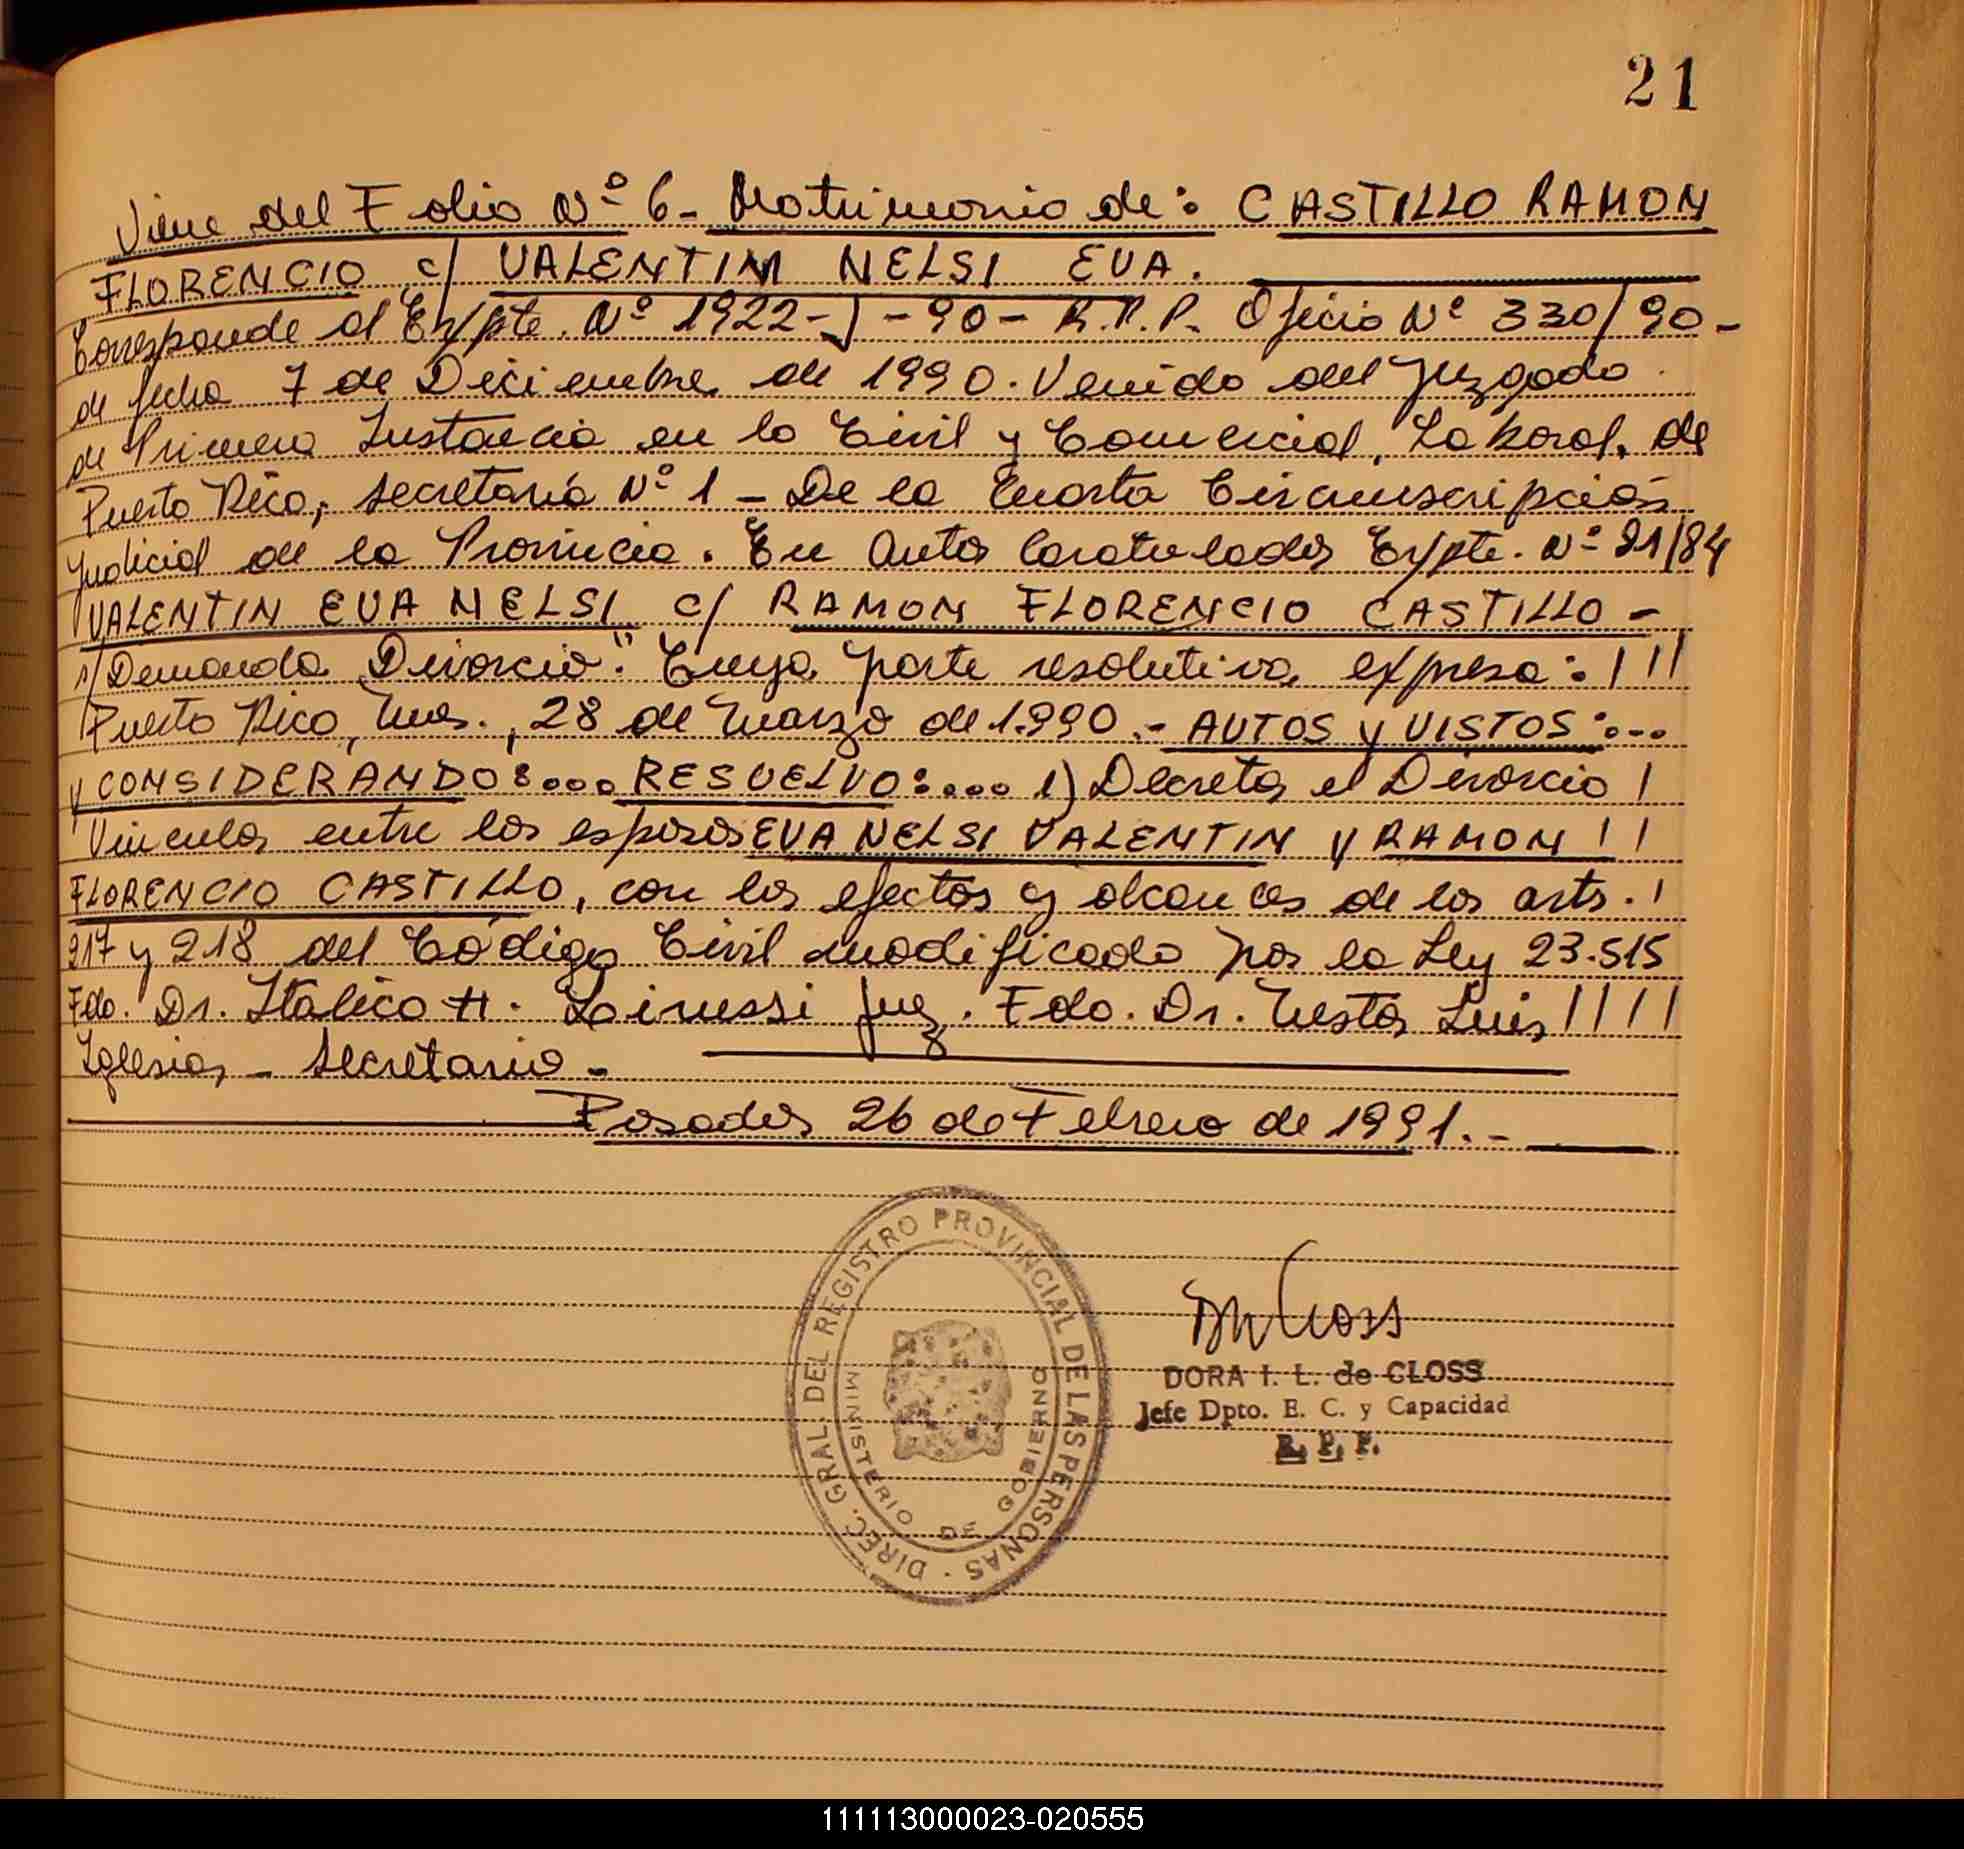 21
Viene del Folio Nº 6- Matrimonio de: CASTILLO RAMON
FLORENCIO c/ VALENTIN NELSI EVA.
Corresponde al Expte. Nº 1922-J-90- R.P.P. Oficio Nº 330/90-
de fecha 7 de Diciembre de 1990. Venido del Juzgado
de Primera Instancia en lo Civil y Comercial, Laboral, de
Puerto Rico, Secretaría Nº 1 - De la Cuarta Circunscripción
Judicial de la Provincia. En Autos Caratulados Expte. Nº 21/84
VALENTIN EVA NELSI c/ RAMON FLORENCIO CASTILLO -
s/Demanda Divorcio". Cuya parte resolutiva expresa: ///
Puerto Rico, Mnes., 28 de Marzo de 1.990.- AUTOS y VISTOS:...
y CONSIDERANDO:... RESUELVO:.... 1) Decretar el Divorcio /
Vincular entre los esposos EVA NELSI VALENTIN y RAMON //
FLORENCIO CASTILLO, con los efectos y alcances de los arts. /
217 y 218 del Código Civil modificado por la Ley 23.515
Fdo. Dr. Italico H. Juez. Fdo. Dr. Nestor Luis ////
Iglesias - Secretario -
Posadas 26 de Febrero de 1991.-
DIREC. GRAL. DEL REGISTRO PROVINCIAL DE LAS PERSONAS
MINISTERIO DE GOBIERNO
DORA I. L. de CLOSS
Jefe Dpto. E. C. y Capacidad
R. P. P.
111113000023-020555